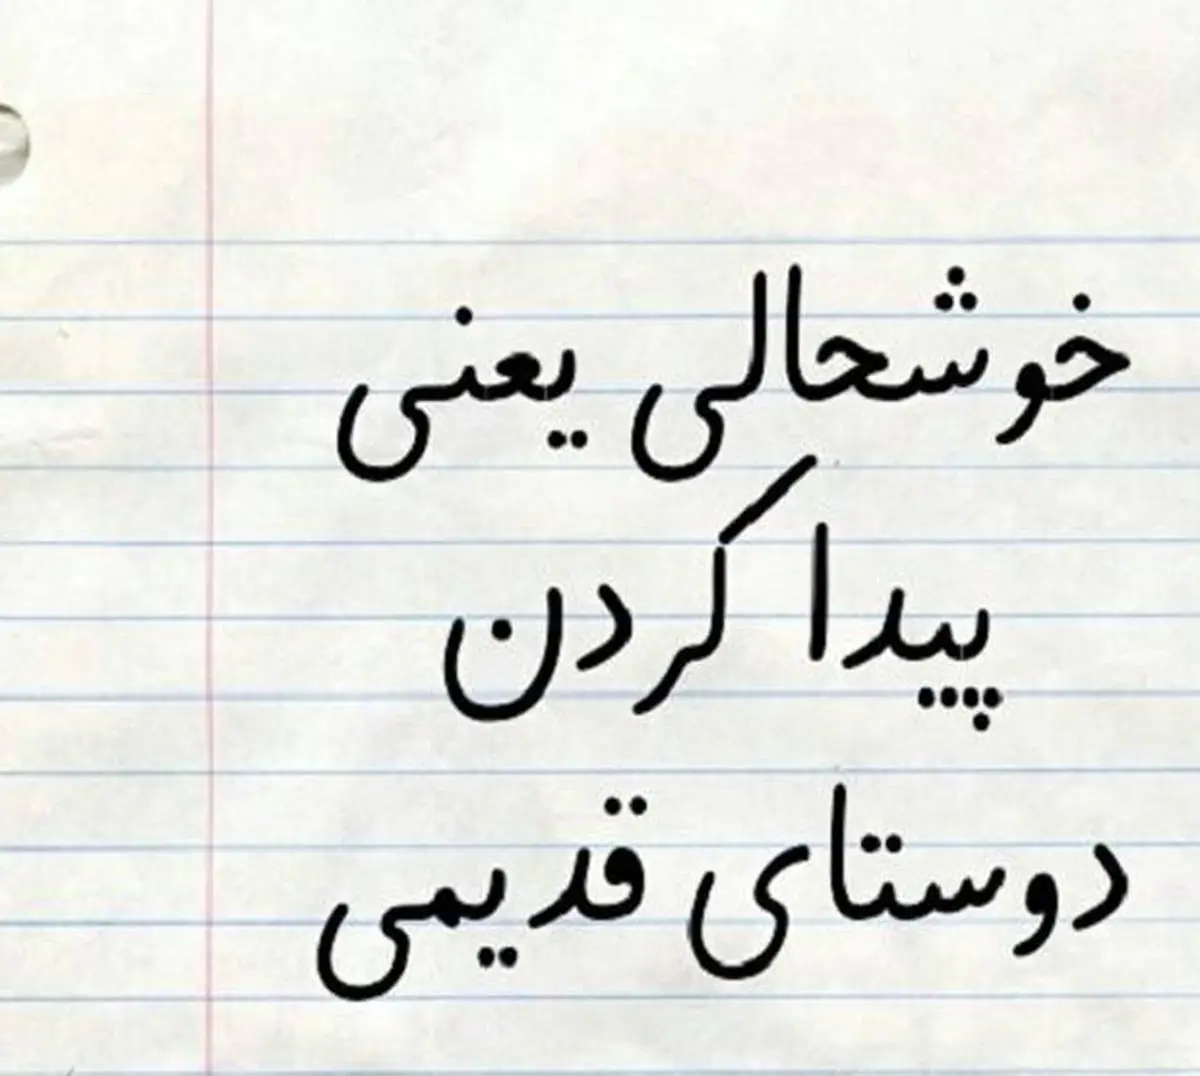 خوشحالی یعنی
پیدا کردن
دوستای قدیمی